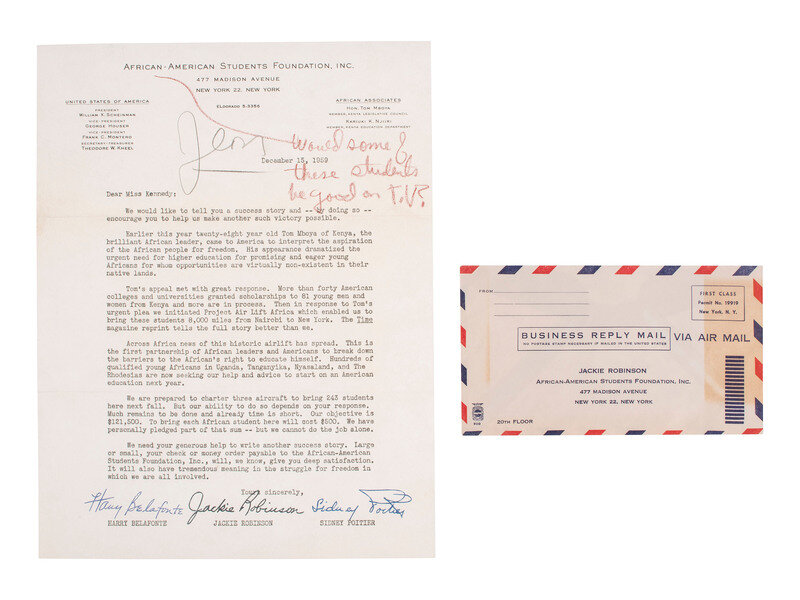 AFRICAN-AMERICAN STUDENTS FOUNDATION, INC.
477 MADISON AVENUE
NEW YORK 22, NEW YORK
ELDORADO 5-5356
UNITED STATES OF AMERICA
PRESIDENT
WILLIAM X. SCHEINMAN
VICE-PRESIDENT
GEORGE HOUSER
VICE-PRESIDENT
FRANK C. MONTERO
SECRETARY-TREASURER
THEODORE W. KHEEL
AFRICAN ASSOCIATES
HON. TOM MBOYA
MEMBER, KENYA LEGISLATIVE COUNCIL
KARIUKI K. NJIIRI
MEMBER, KENYA EDUCATION DEPARTMENT
would some of
these students
be good on T.V?
December 15, 1959
Dear Miss Kennedy:
We would like to tell you a success story and -- by doing so --
encourage you to help us make another such victory possible.
Earlier this year twenty-eight year old Tom Mboya of Kenya, the
brilliant African leader, came to America to interpret the aspiration
of the African people for freedom. His appearance dramatized the
urgent need for higher education for promising and eager young
Africans for whom opportunities are virtually non-existent in their
native lands.
Tom's appeal met with great response. More than forty American
colleges and universities granted scholarships to 81 young men and
women from Kenya and more are in process. Then in response to Tom's
urgent plea we initiated Project Air Lift Africa which enabled us to
bring these students 8,000 miles from Nairobi to New York. The Time
magazine reprint tells the full story better than me.
Across Africa news of this historic airlift has spread. This is
the first partnership of African leaders and Americans to break down
the barriers to the African's right to educate himself. Hundreds of
qualified young Africans in Uganda, Tanganyika, Nyasaland, and The
Rhodesias are now seeking our help and advice to start on an American
education next year.
We are prepared to charter three aircraft to bring 243 students
here next fall. But our ability to do so depends on your response.
Much remains to be done and already time is short. Our objective is
$121,500. To bring each African student here will cost $500. We have
personally pledged part of that sum -- but we cannot do the job alone.
We need your generous help to write another success story. Large
or small, your check or money order payable to the African-American
Students Foundation, Inc., will, we know, give you deep satisfaction.
It will also have tremendous meaning in the struggle for freedom in
which we are all involved.
Yours sincerely,
Harry Belafonte Jackie Robinson Sidney Poitier
HARRY BELAFONTE JACKIE ROBINSON SIDNEY POITIER
FROM
FIRST CLASS
Permit No. 19910
New York, N. Y.
BUSINESS REPLY MAIL
NO POSTAGE STAMP NECESSARY IF MAILED IN THE UNITED STATES
VIA AIR MAIL
JACKIE ROBINSON
AFRICAN-AMERICAN STUDENTS FOUNDATION, INC.
477 MADISON AVENUE
NEW YORK 22, NEW YORK
20TH FLOOR